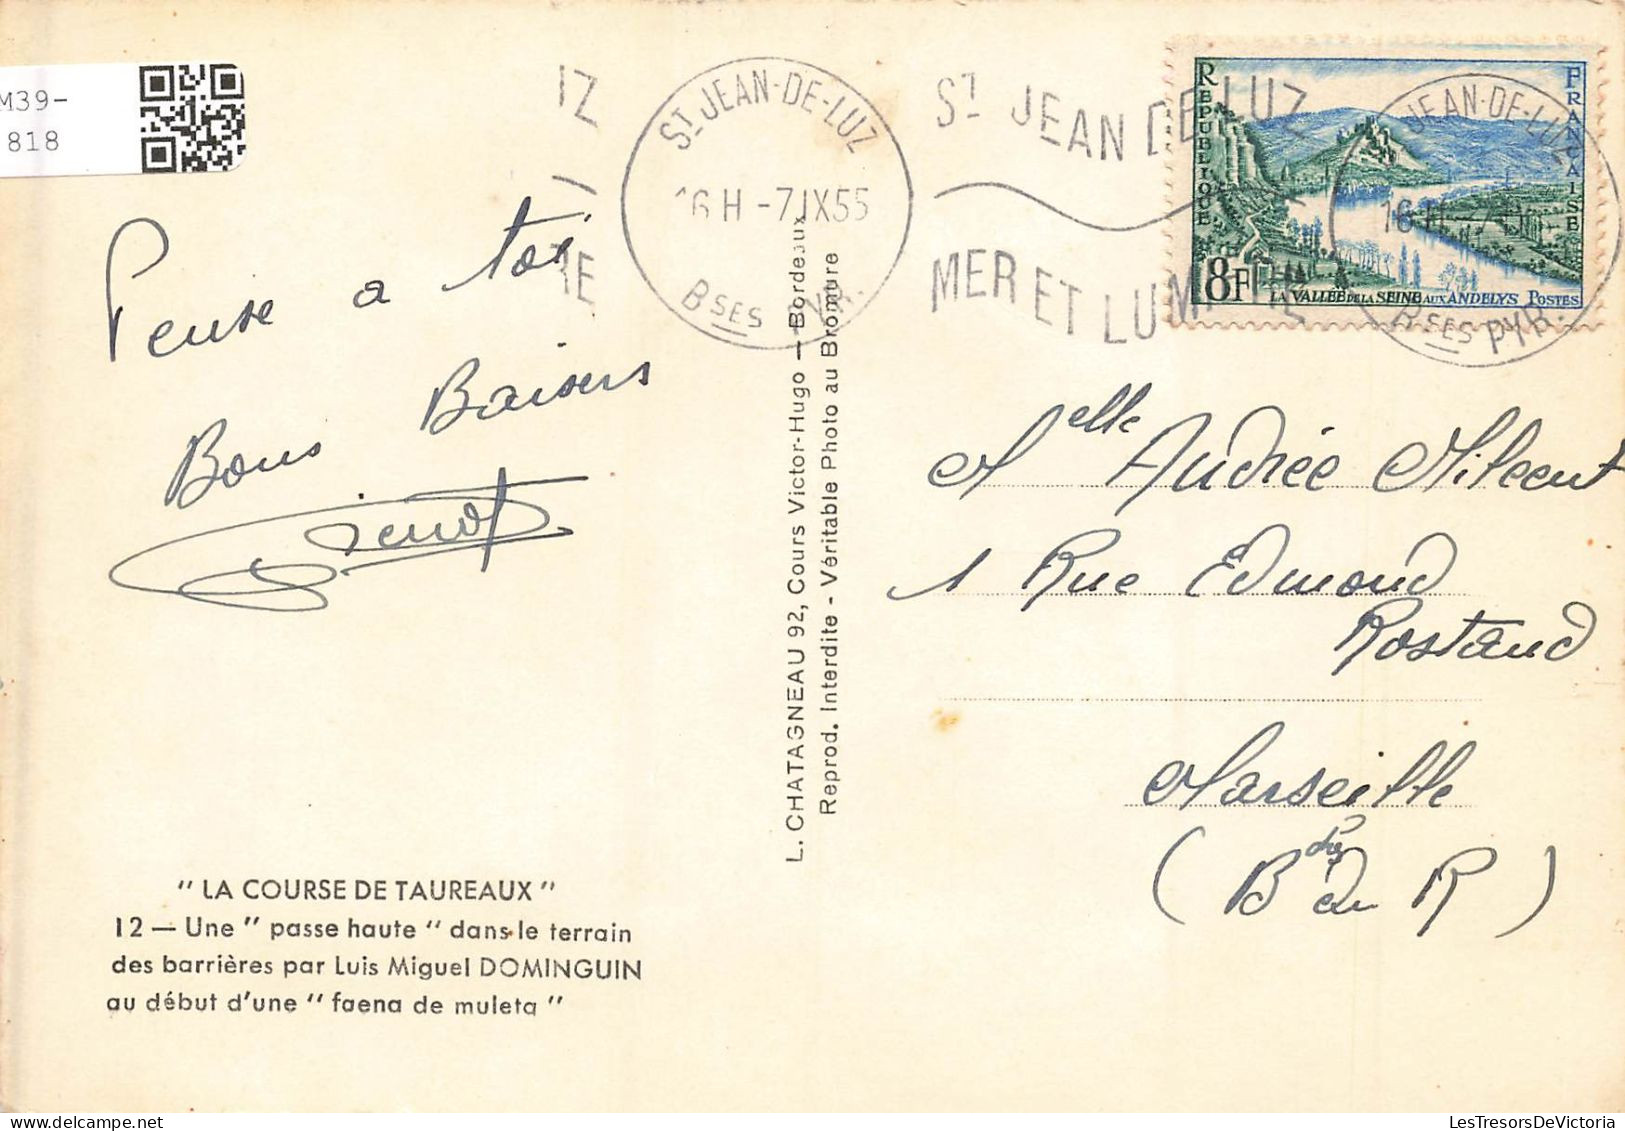 M39-
818
IZ
RE
ST JEAN-DE-LUZ
16H -7 IX55
BSES PYR.
ST JEAN DE LUZ
MER ET LUMIERE
REPUBLIQUE FRANÇAISE
8F
LA VALLÉE DE LA SEINE AUX ANDELYS POSTES
JEAN-DE-LUZ
16H
BSES PYR.
Pense a toi
Bons Baisers
Melle Andrée Milcent
1 Rue Edmond
Rostand
Marseille
(Bches du R)
L. CHATAGNEAU 92, Cours Victor-Hugo — Bordeaux
Reprod. Interdite - Véritable Photo au Bromure
" LA COURSE DE TAUREAUX "
12 — Une " passe haute " dans le terrain
des barrières par Luis Miguel DOMINGUIN
au début d'une " faena de muleta "
LesTresorsDeVictoria